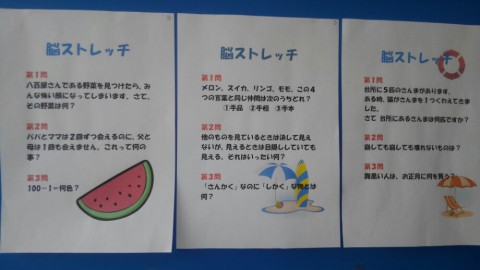 脳ストレッチ
第1問
八百屋さんである野菜を見つけたら、み
んな怖い顔になってしまいます。さて、
その野菜は何?
第2問
パパとママは2回ずつ会えるのに、父と
母は1回も会えません。これって何の
事?
第3問
100-1=何色?
脳ストレッチ
第1問
メロン、スイカ、リンゴ、モモ、この4
つの言葉と同じ仲間は次のうちどれ?
①手品 ②手相 ③手本
第2問
他のものを見ているときは決して見え
ないが、見えるときは目隠ししていても
見える、それはいったい何?
第3問
「さんかく」なのに「しかく」な何とは
何?
脳ストレッチ
第1問
台所に5匹のさんまがあります。
ある時、猫がさんまを1つくわえてきま
した。
さて 台所にあるさんまは何匹ですか?
第2問
崩しても崩しても壊れないものは?
第3問
胸悪い人は、お正月に何を買う?